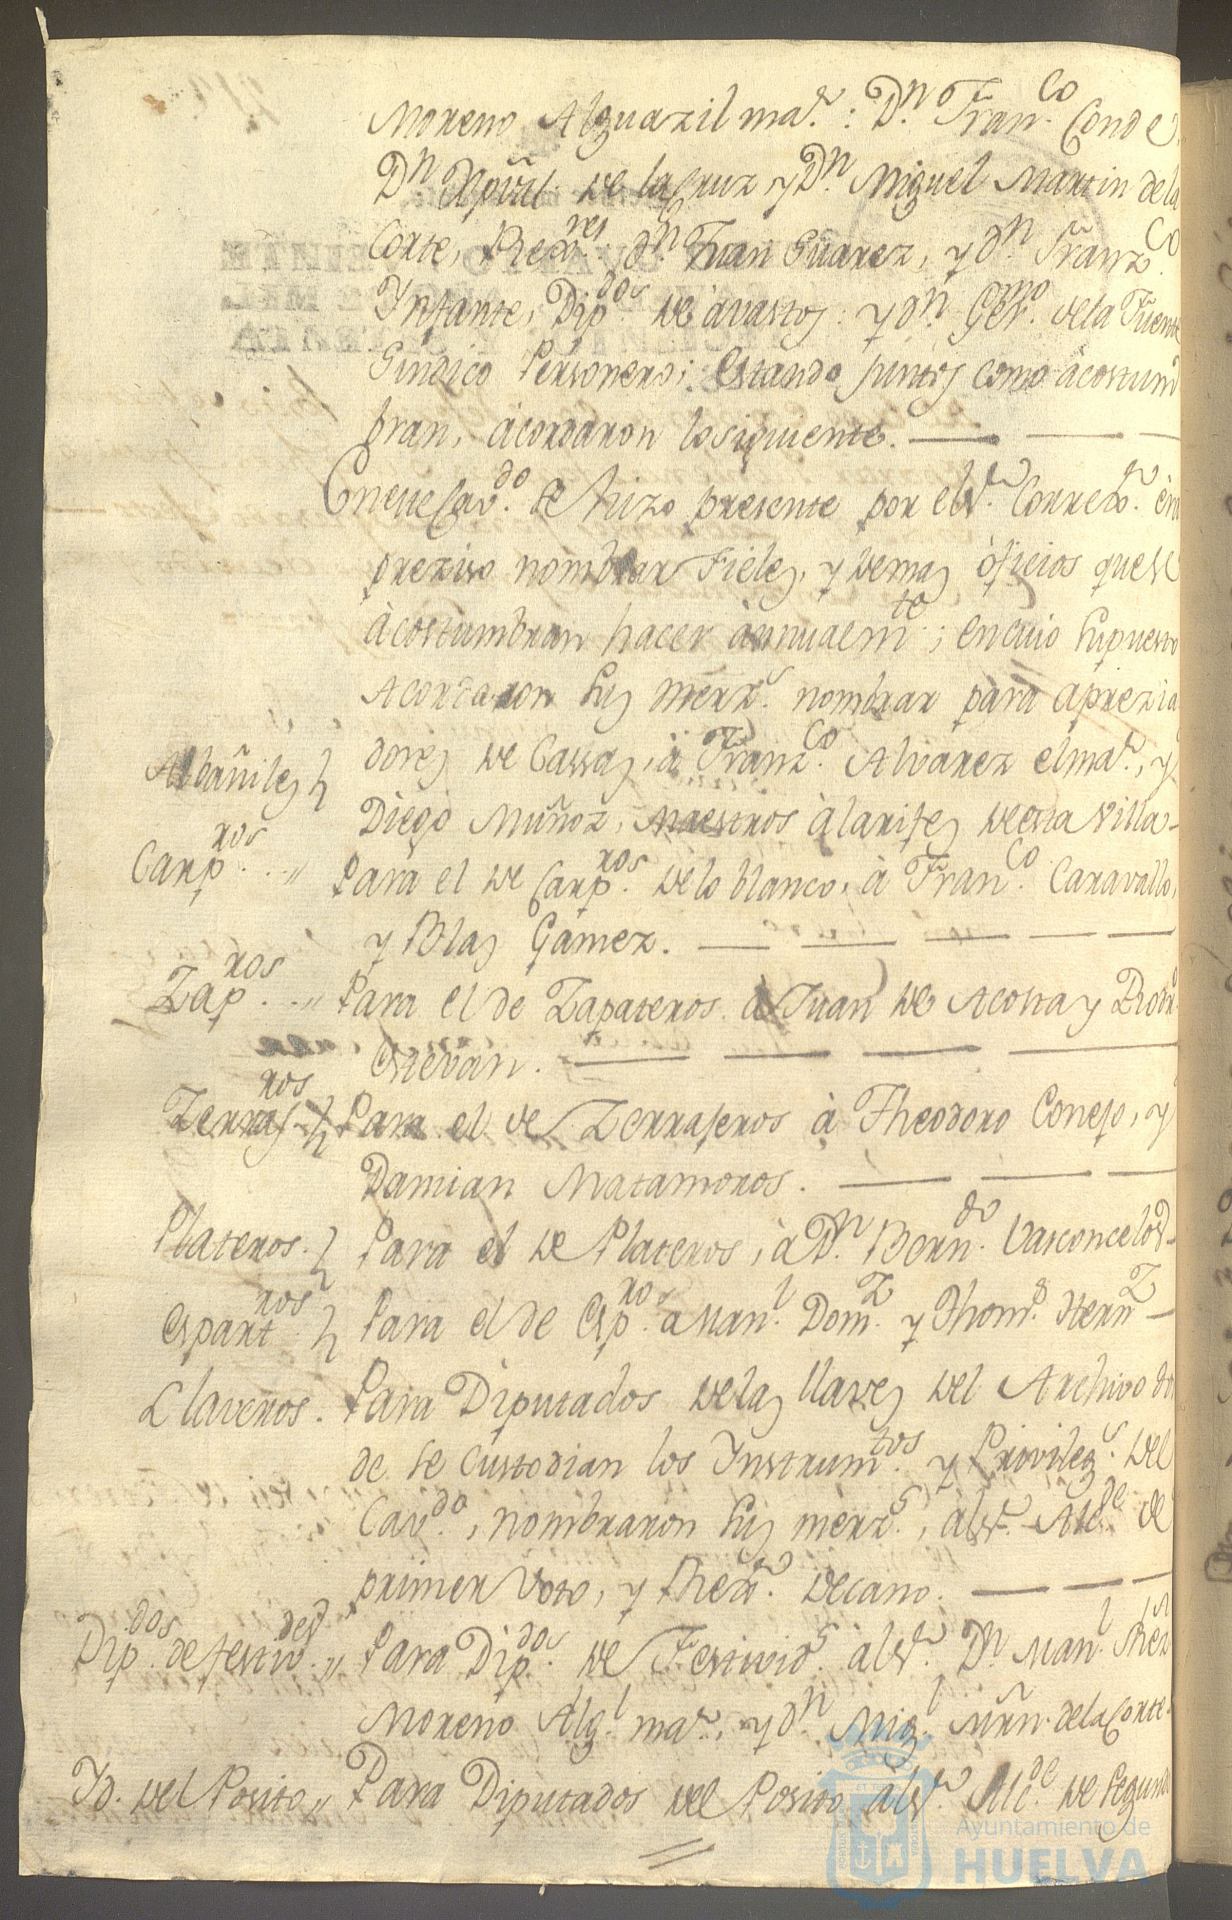 Moreno Alguazil ma.r : D.n Fran.co Conde,
D.n Xpŭl. de la Cruz y D.n Miguel Martin de la
Corte, Rex.res : d.n Juan Suarez, y d.n Franz.co
Ynfante, Dip.dos de àvastos : y d.n Ger.mo de la Fuente
Sindico Personero; estando juntos como àcostum
bran, àcordaron lo siguiente.
En este Cav.do se hizo presente por el S.r Correx.r èra
preziso nombrar Fieles, y demas òficios que se
àcostumbran hacer ànnualem.te ; en cuio supuesto
Acordaron sus merz.s nombrar para aprezia
Albañiles dores de Cassas, à Franz.co Alvarez el ma.r, y
Diego Muñoz, Maestros àlarifes de esta Villa
Carp.ros Para el de Carp.ros de lo blanco, à Fran.co Caravallo,
y Blas Gamez.
Zap.ros Para el de Zapateros à Juan de Acosta y
estevan.
Zerraj.ros Para el de Zerrajeros à Theodoro Conejo, y
Damian Matamoros.
Plateros. Para el de Plateros, à D.n Bern.do Vasconcelos
espart.ros Para el de Esp.ros a Man.l Dom.z y Thom.s Hern.z
Llaveros. Para Diputados de las llaves del Archivo don
de se Custodian los Ynstrum.tos y Privileg.s del
Cav.do, nombraron sus merz.s, àl S.r Alc.de de
primer Voto, y Rex.r decano.
Dip.dos de festiv.des Para Dip.dos de Festivid.s àl S.r D.n Man.l
Moreno Alg.l ma.r, y d.n Mig.l Mrn. de la Corte
Yd. del Posito Para Diputados del Posito àl S.r Alc.de de segundo
Ayuntamiento de
HUELVA